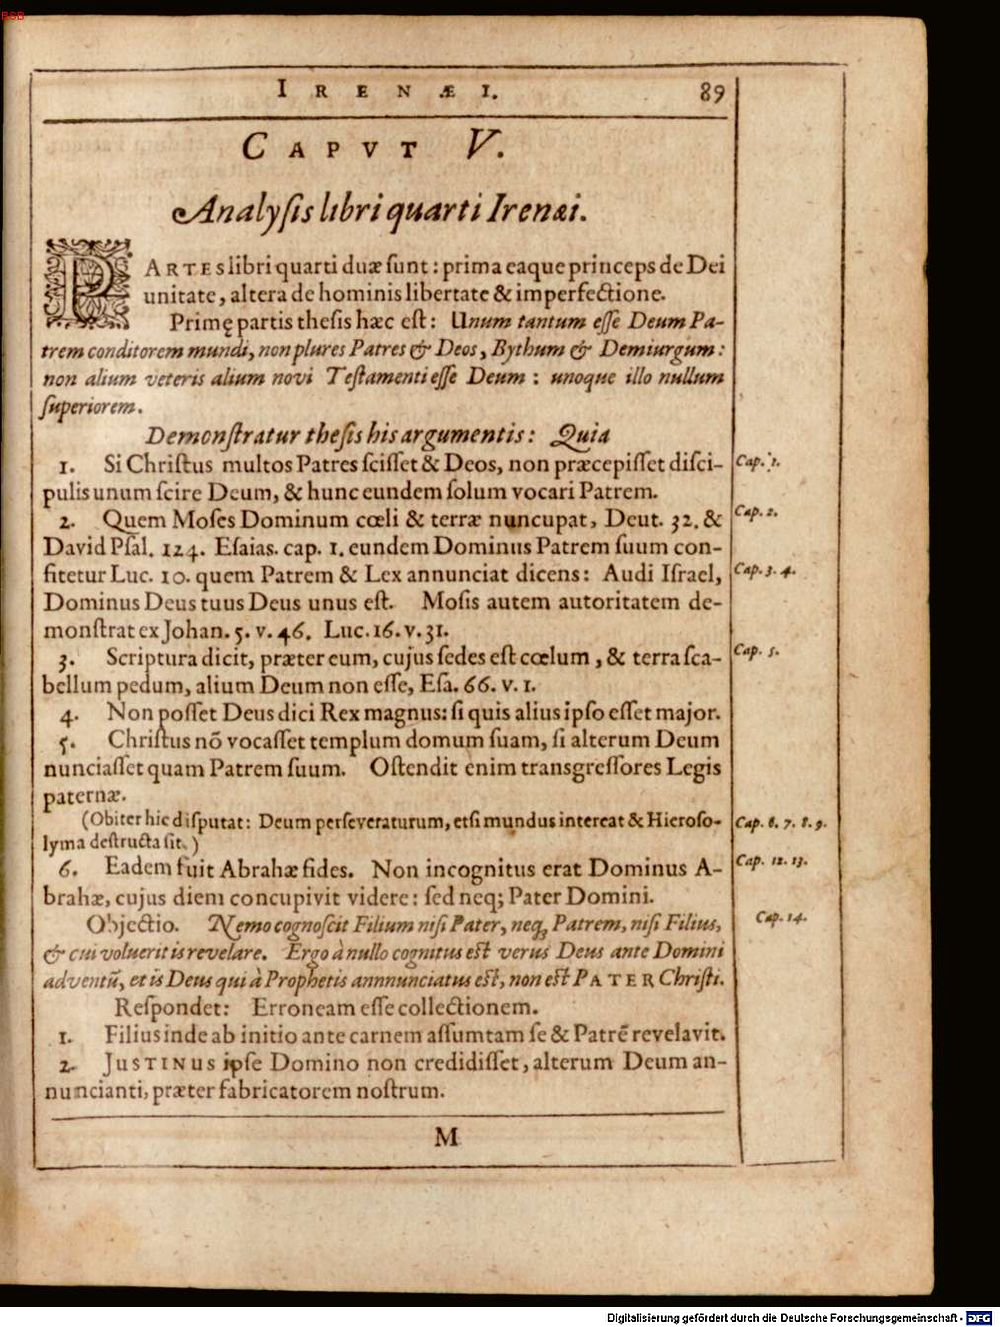 BSB
IRENÆI. 89
CAPVT V.
Analyſis libri quarti Irenæi.
PARTES libri quarti duæ ſunt: prima eaque princeps de Dei
unitate, altera de hominis libertate & imperfectione.
Primę partis theſis hæc eſt: Unum tantum eſſe Deum Pa-
trem conditorem mundi, non plures Patres & Deos, Bythum & Demiurgum:
non alium veteris alium novi Teſtamenti eſſe Deum: unoque illo nullum
ſuperiorem.
Demonſtratur theſis his argumentis: Quia
1. Si Chriſtus multos Patres ſciſſet & Deos, non præcepiſſet diſci- Cap. 1.
pulis unum ſcire Deum, & hunc eundem ſolum vocari Patrem.
2. Quem Moſes Dominum cœli & terræ nuncupat, Deut. 32. & Cap. 2.
David Pſal. 124. Eſaias. cap. 1. eundem Dominus Patrem ſuum con-
fitetur Luc. 10. quem Patrem & Lex annunciat dicens: Audi Iſrael, Cap. 3. 4.
Dominus Deus tuus Deus unus eſt. Moſis autem autoritatem de-
monſtrat ex Johan. 5. v. 46. Luc. 16. v. 31.
3. Scriptura dicit, præter eum, cujus ſedes eſt cœlum, & terra ſca- Cap. 5.
bellum pedum, alium Deum non eſſe, Eſa. 66. v. 1.
4. Non poſſet Deus dici Rex magnus: ſi quis alius ipſo eſſet major.
5. Chriſtus nõ vocaſſet templum domum ſuam, ſi alterum Deum
nunciaſſet quam Patrem ſuum. Oſtendit enim transgreſſores Legis
paternæ.
(Obiter hic diſputat: Deum perſeveraturum, etſi mundus intereat & Hieroſo- Cap. 6. 7. 8. 9.
lyma deſtructa ſit.)
6. Eadem fuit Abrahæ fides. Non incognitus erat Dominus A- Cap. 12. 13.
brahæ, cujus diem concupivit videre: ſed neq; Pater Domini.
Objectio. Nemo cognoſcit Filium niſi Pater, neq; Patrem, niſi Filius, Cap. 14.
& cui voluerit is revelare. Ergo à nullo cognitus eſt verus Deus ante Domini
adventũ, et is Deus qui à Prophetis annnunciatus eſt, non eſt PATER Chriſti.
Reſpondet: Erroneam eſſe collectionem.
1. Filius inde ab initio ante carnem aſſumtam ſe & Patrẽ revelavit.
2. JUSTINUS ipſe Domino non credidiſſet, alterum Deum an-
nuncianti, præter fabricatorem noſtrum.
M
Digitalisierung gefördert durch die Deutsche Forschungsgemeinschaft - DFG